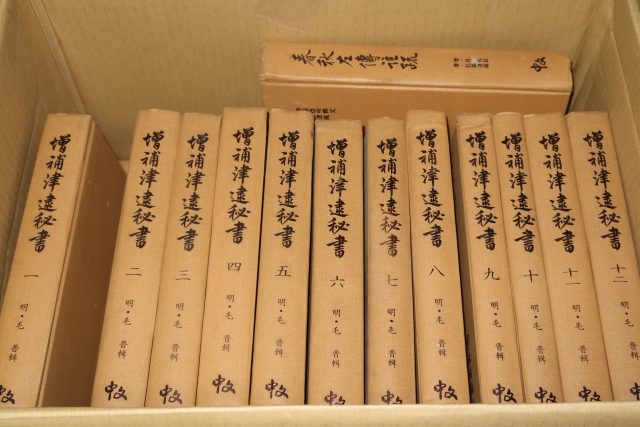 春秋左傳注疏
中文
增補津逮秘書
一
明・毛 晉輯
中文
增補津逮秘書
二
明・毛 晉輯
中文
增補津逮秘書
三
明・毛 晉輯
中文
增補津逮秘書
四
明・毛 晉輯
中文
增補津逮秘書
五
明・毛 晉輯
中文
增補津逮秘書
六
明・毛 晉輯
中文
增補津逮秘書
七
明・毛 晉輯
中文
增補津逮秘書
八
明・毛 晉輯
中文
增補津逮秘書
九
明・毛 晉輯
中文
增補津逮秘書
十
明・毛 晉輯
中文
增補津逮秘書
十一
明・毛 晉輯
中文
增補津逮秘書
十二
明・毛 晉輯
中文